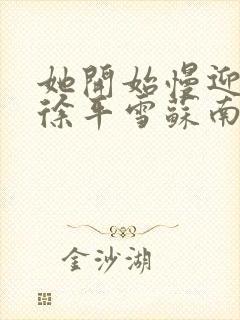 她開始慢迎
徐平雪蘇南
金沙湖